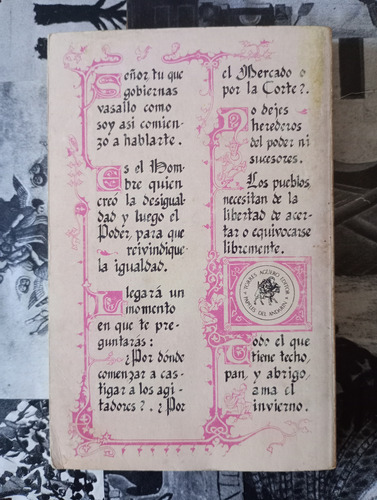 Señor tu que
gobiernas
vasallo como
soy asi comien-
zo a hablarte.
Es el Hom-
bre quien
creó la desigual-
dad y luego el
Poder, para que
reivindique
la igualdad.
Llegará un
momento
en que te pre-
guntarás:
¿Por dónde
comenzar a cas-
tigar a los agi-
tadores?. ¿Por
el Mercado o
por la Corte?.
No dejes
herederos
del poder ni
sucesores.
Los pueblos
necesitan de la
libertad de acer-
tar o equivocarse
libremente.
TORRES AGÜERO EDITOR
PAPELES DEL ANDARIN
Todo el que
tiene techo,
pan, y abrigo,
ama el
invierno.